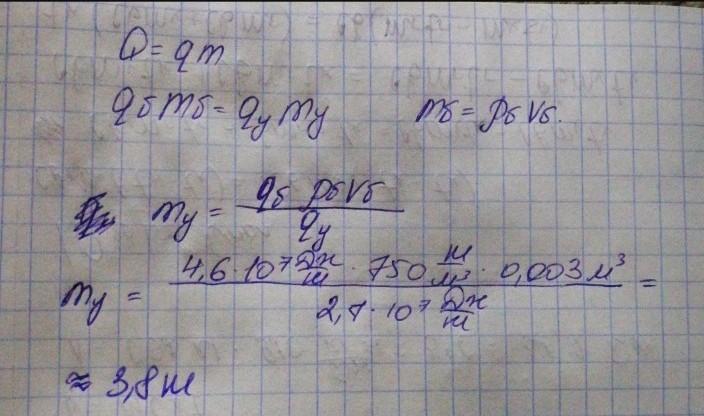 Q = qm
qбmб = qуmу mб = ρбVб.
mу = qб ρбVб / qу
mу = 4,6·10⁷ Дж/кг · 750 кг/м³ · 0,003 м³ / 2,7·10⁷ Дж/кг =
≈ 3,8 кг